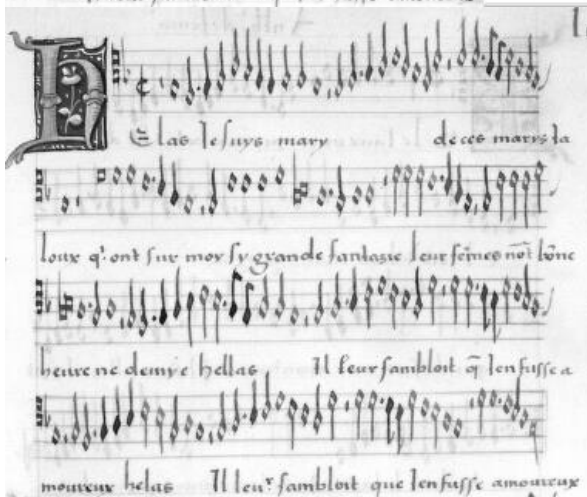 HElas Je suys mary de ces marys Ja
loux q' ont sur moy sy grande fantazie leur fēmes nōt bōne
heure ne demye hellas Il leur sambloit q̄ Jen fusse a
moureux helas Il leuʳ sambloit que Jen fusse amoureux